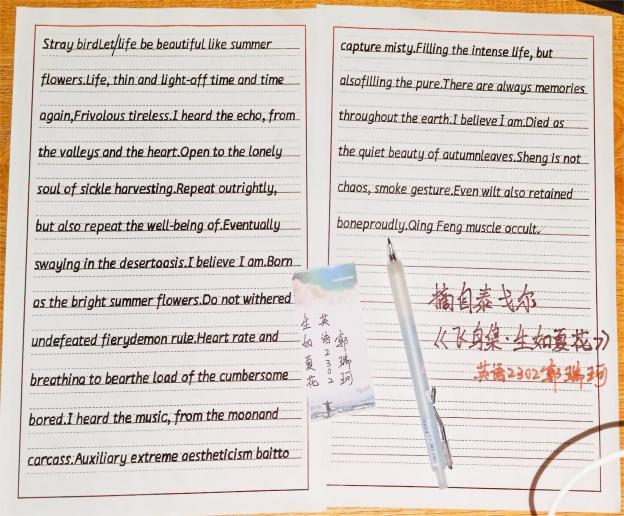 Stray birdLet/life be beautiful like summer
flowers.Life, thin and light-off time and time
again,Frivolous tireless.I heard the echo, from
the valleys and the heart.Open to the lonely
soul of sickle harvesting.Repeat outrightly,
but also repeat the well-being of.Eventually
swaying in the desertoasis.I believe I am.Born
as the bright summer flowers.Do not withered
undefeated fierydemon rule.Heart rate and
breathing to bearthe load of the cumbersome
bored.I heard the music, from the moonand
carcass.Auxiliary extreme aestheticism baitto
capture misty.Filling the intense life, but
alsofilling the pure.There are always memories
throughout the earth.I believe I am.Died as
the quiet beauty of autumnleaves.Sheng is not
chaos, smoke gesture.Even wilt also retained
boneproudly.Qing Feng muscle occult.
摘自泰戈尔
《飞鸟集·生如夏花》
英语2302郭瑞珂
生如夏花
英语2302
郭瑞珂